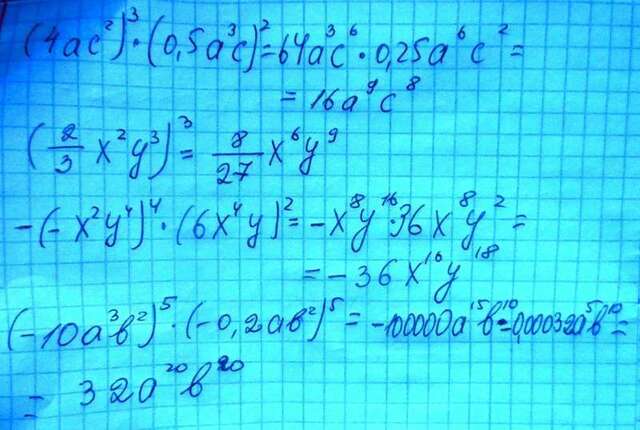 (4ac²)³·(0,5a³c)²=64a³c⁶·0,25a⁶c²=
=16a⁹c⁸
(2/3 x²y³)³=8/27 x⁶y⁹
-(-x²y⁴)⁴·(6x⁴y)²=-x⁸y¹⁶·36x⁸y²=
=-36x¹⁶y¹⁸
(-10a³b²)⁵·(-0,2ab²)⁵=-100000a¹⁵b¹⁰·-0,00032a⁵b¹⁰=
=32a²⁰b²⁰